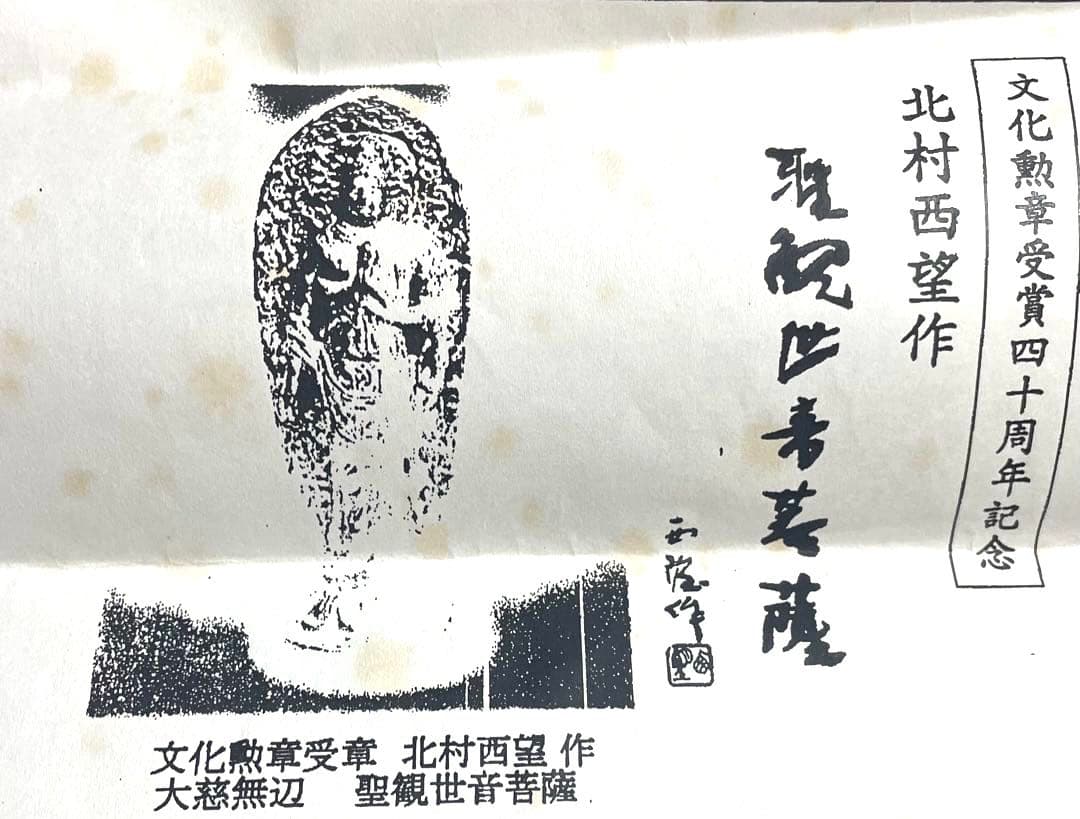 文化勲章受賞四十周年記念
北村西望作
聖観世音菩薩
西望作
文化勲章受章 北村西望 作
大慈無辺 聖観世音菩薩